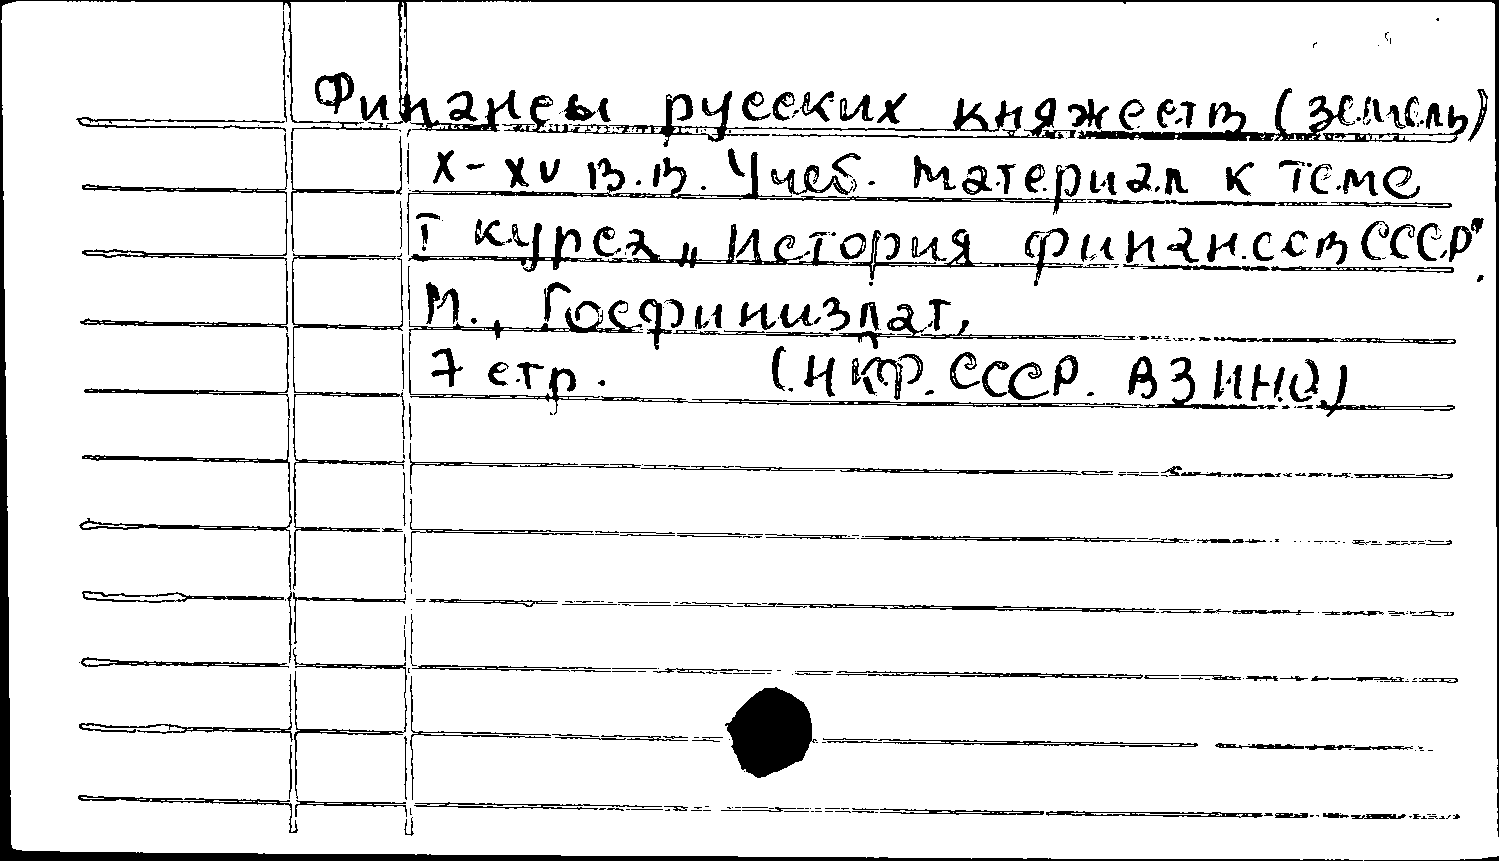 Финансы русских княжеств (земель)
X-XV в.в. Учеб. материал к теме
I курса „История финансов СССР".
М., Госфиниздат,
7 стр. (НКФ. СССР. ВЗИНО.)